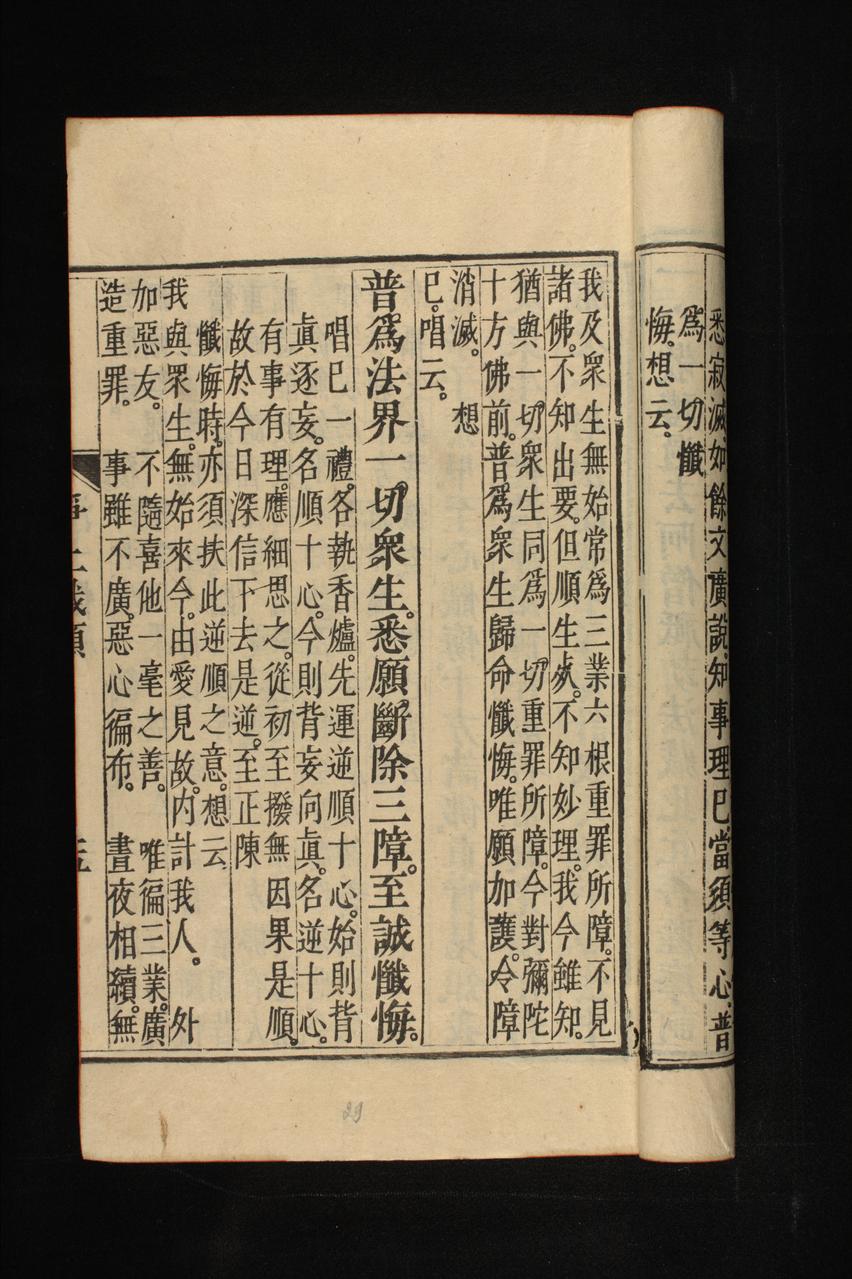 悉寂滅如餘文廣說知事理已當須等心普
爲一切懺
悔。想云。
我及衆生無始常爲三業六根重罪所障。不見
諸佛。不知出要。但順生死。不知妙理。我今雖知。
猶與一切衆生同爲一切重罪所障。今對彌陀
十方佛前。普爲衆生歸命懺悔。唯願加護。令障
消滅。 想
已。唱云。
普爲法界一切衆生。悉願斷除三障。至誠懺悔。
唱已一禮。各執香爐。先運逆順十心。始則背
眞逐妄。名順十心。今則背妄向眞。名逆十心。
有事有理。應細思之。從初至撥無因果是順。
故於今日深信下去是逆。至正陳
懺悔時。亦須扶此逆順之意。想云
我與眾生。無始來今。由愛見故。內計我人。 外
加惡友。 不隨喜他一毫之善。 唯徧三業。廣
造重罪。 事雖不廣。惡心徧布。 晝夜相續。無
29